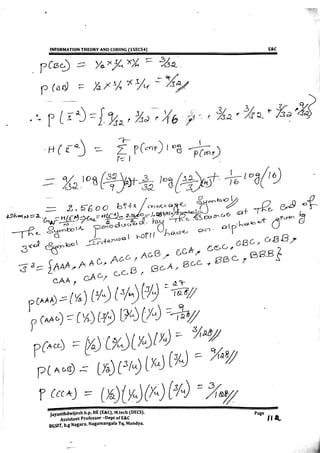 INFORMATION THEORY AND CODING (15EC54) E&C
P(BC) = ½ x ¼ x ¾ = 3/32
P(BB) = ½ x ¾ x ¾ = 9/32
∴ P(S²) = { 9/32, 3/32, 1/16, 3/32, 3/32, 3/32
H(S²) = Σ P(mi) log 1/P(mi)
i=1
= 9/32 log(32/9) x 2 + 3/32 log(32/3) x 4 + 1/16 log(16)
= 2.5600 bits / message Symbol
The Symbols produced by the source at the end of
3rd Symbol Interval will have an alphabet given by
S³ = {AAA, AAC, ACC, ACB, CCA, CCC, CBC, CBB,
CAA, CAC, CCB, BCA, BCC, BBC, BBB}
P(AAA) = (½) (¾) (¾) (¾) = 27/128//
P(AAC) = (½) (¾) (¾) (¼) = 9/128//
P(ACC) = (½) (¾) (¼) (¼) = 3/128//
P(ACB) = (½) (¾) (¼) (¾) = 9/128//
P(CCA) = (½) (¼) (¼) (¾) = 3/128//
Jayanthdwijesh h.p, BE (E&C), M.tech (DECS). Page
Assistant Professor –Dept of E&C 112
BGSIT, b.g Nagara, Nagamangala Tq, Mandya.